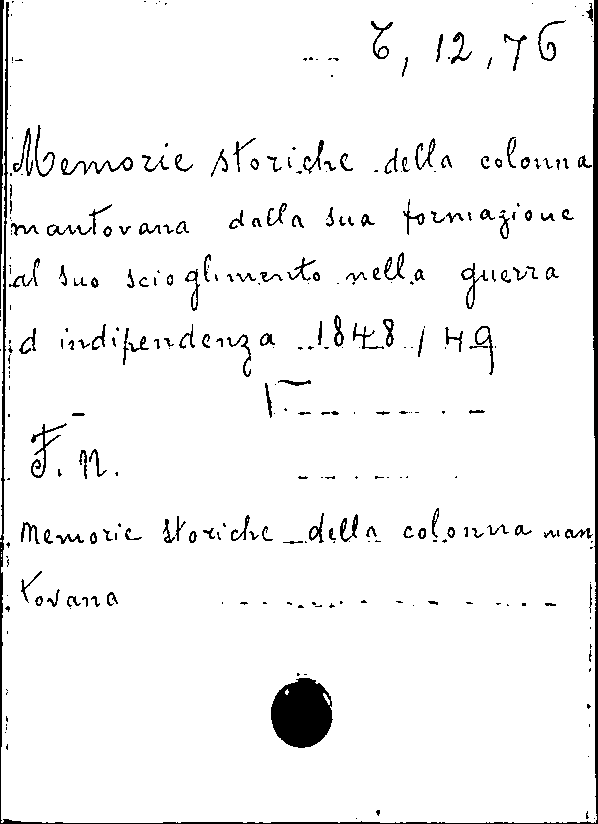 6, 12, 76
Memorie storiche della colonna
mantovana dalla sua formazione
al suo scioglimento nella guerra
d indipendenza 1848/49
F. n.
Memorie storiche della colonna man
tovana